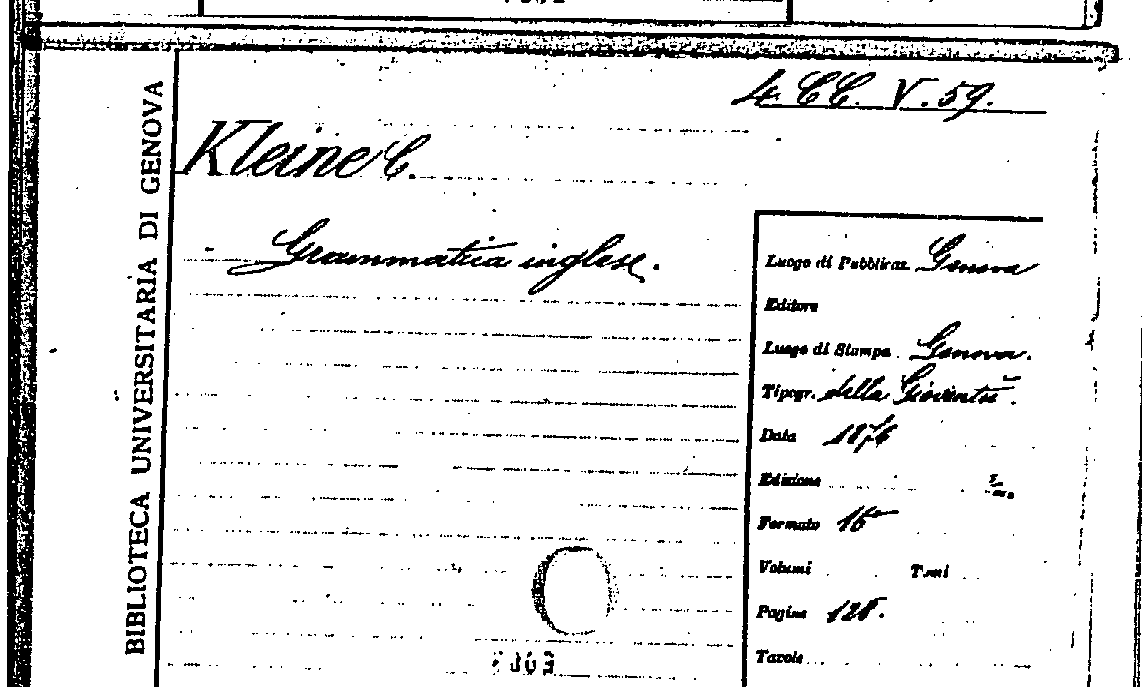 4. CC. V. 59.
BIBLIOTECA UNIVERSITARIA DI GENOVA
Kleine C.
Grammatica inglese.
Luogo di Pubblicaz. Genova
Editore
Luogo di Stampa Genova.
Tipogr. della Gioventù.
Data 1876
Edizione
Formato 16°
Volumi T.mi
Pagine 128.
Tavole